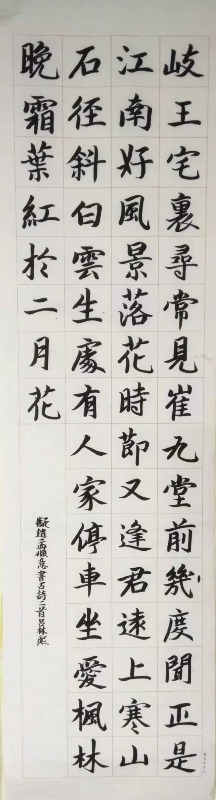 岐王宅裏尋常見崔九堂前幾度聞正是
江南好風景落花時節又逢君遠上寒山
石徑斜白雲生處有人家停車坐愛楓林
晚霜葉紅於二月花
擬趙孟頫意書古詩二首